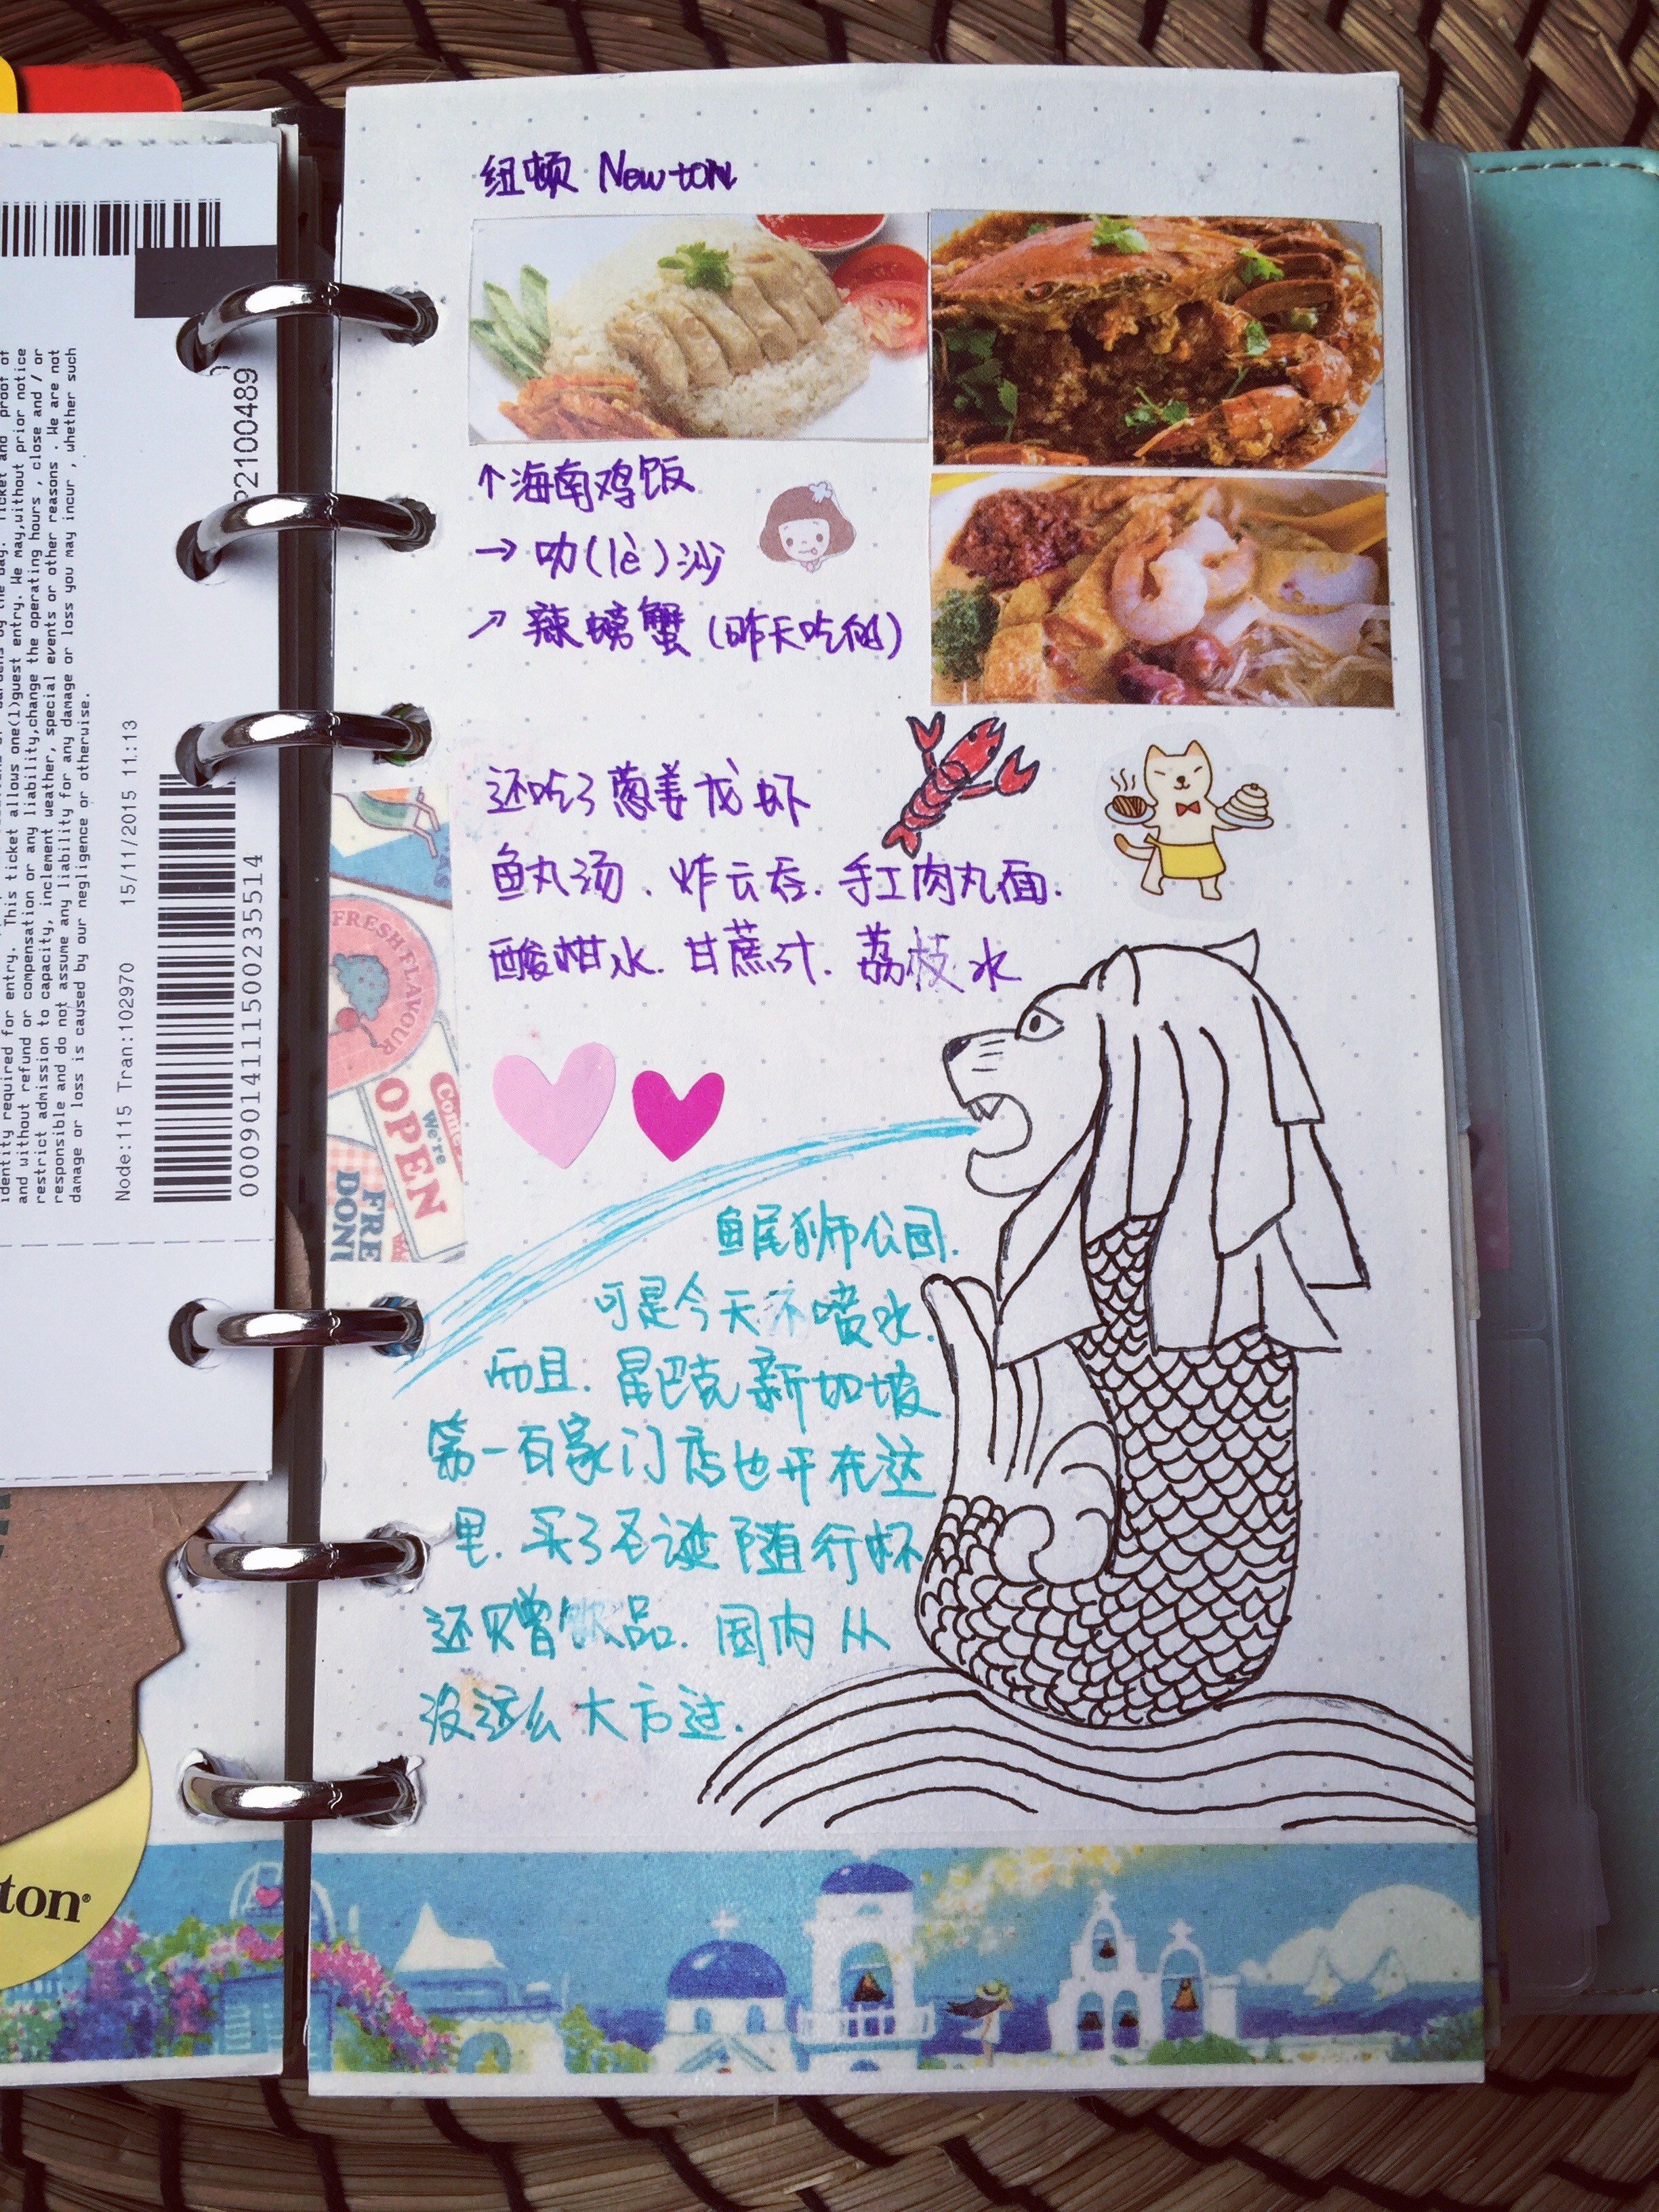 纽顿 Newton
↑海南鸡饭
→ 叻(lè)沙
↗ 辣螃蟹(昨天吃的)
还吃了葱姜龙虾
鱼丸汤、炸云吞、手工肉丸面.
酸柑水. 甘蔗汁. 荔枝水
鱼尾狮公园.
可是今天不喷水.
而且. 星巴克新加坡
第一百家门店也开在这
里. 买了圣诞随行杯
还赠饮品. 国内从
没这么大方过.
FRESH FLAVOUR
Come
We're
OPEN
FRE
DON
identity required for entry. This ticket allows one(1)guest entry. We may,without prior notice
and without refund or compensation or any liability,change the operating hours , close and / or
restrict admission to capacity, inclement weather, special events or other reasons . We are not
responsible and do not assume any liability for any damage or loss you may incur , whether such
damage or loss is caused by our negligence or otherwise.
Node:115 Tran:102970 15/11/2015 11:13
00090141115000235514
P2100489
ton